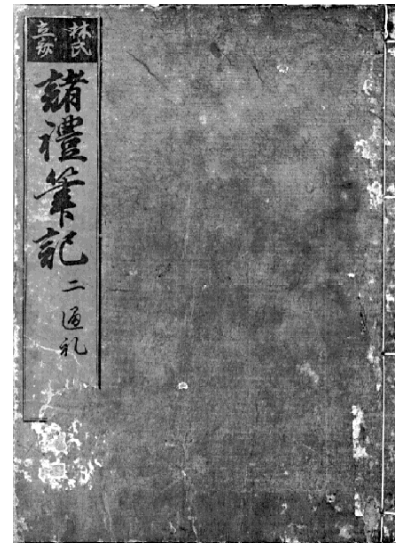 林氏
立
諸禮筆記
二 通礼